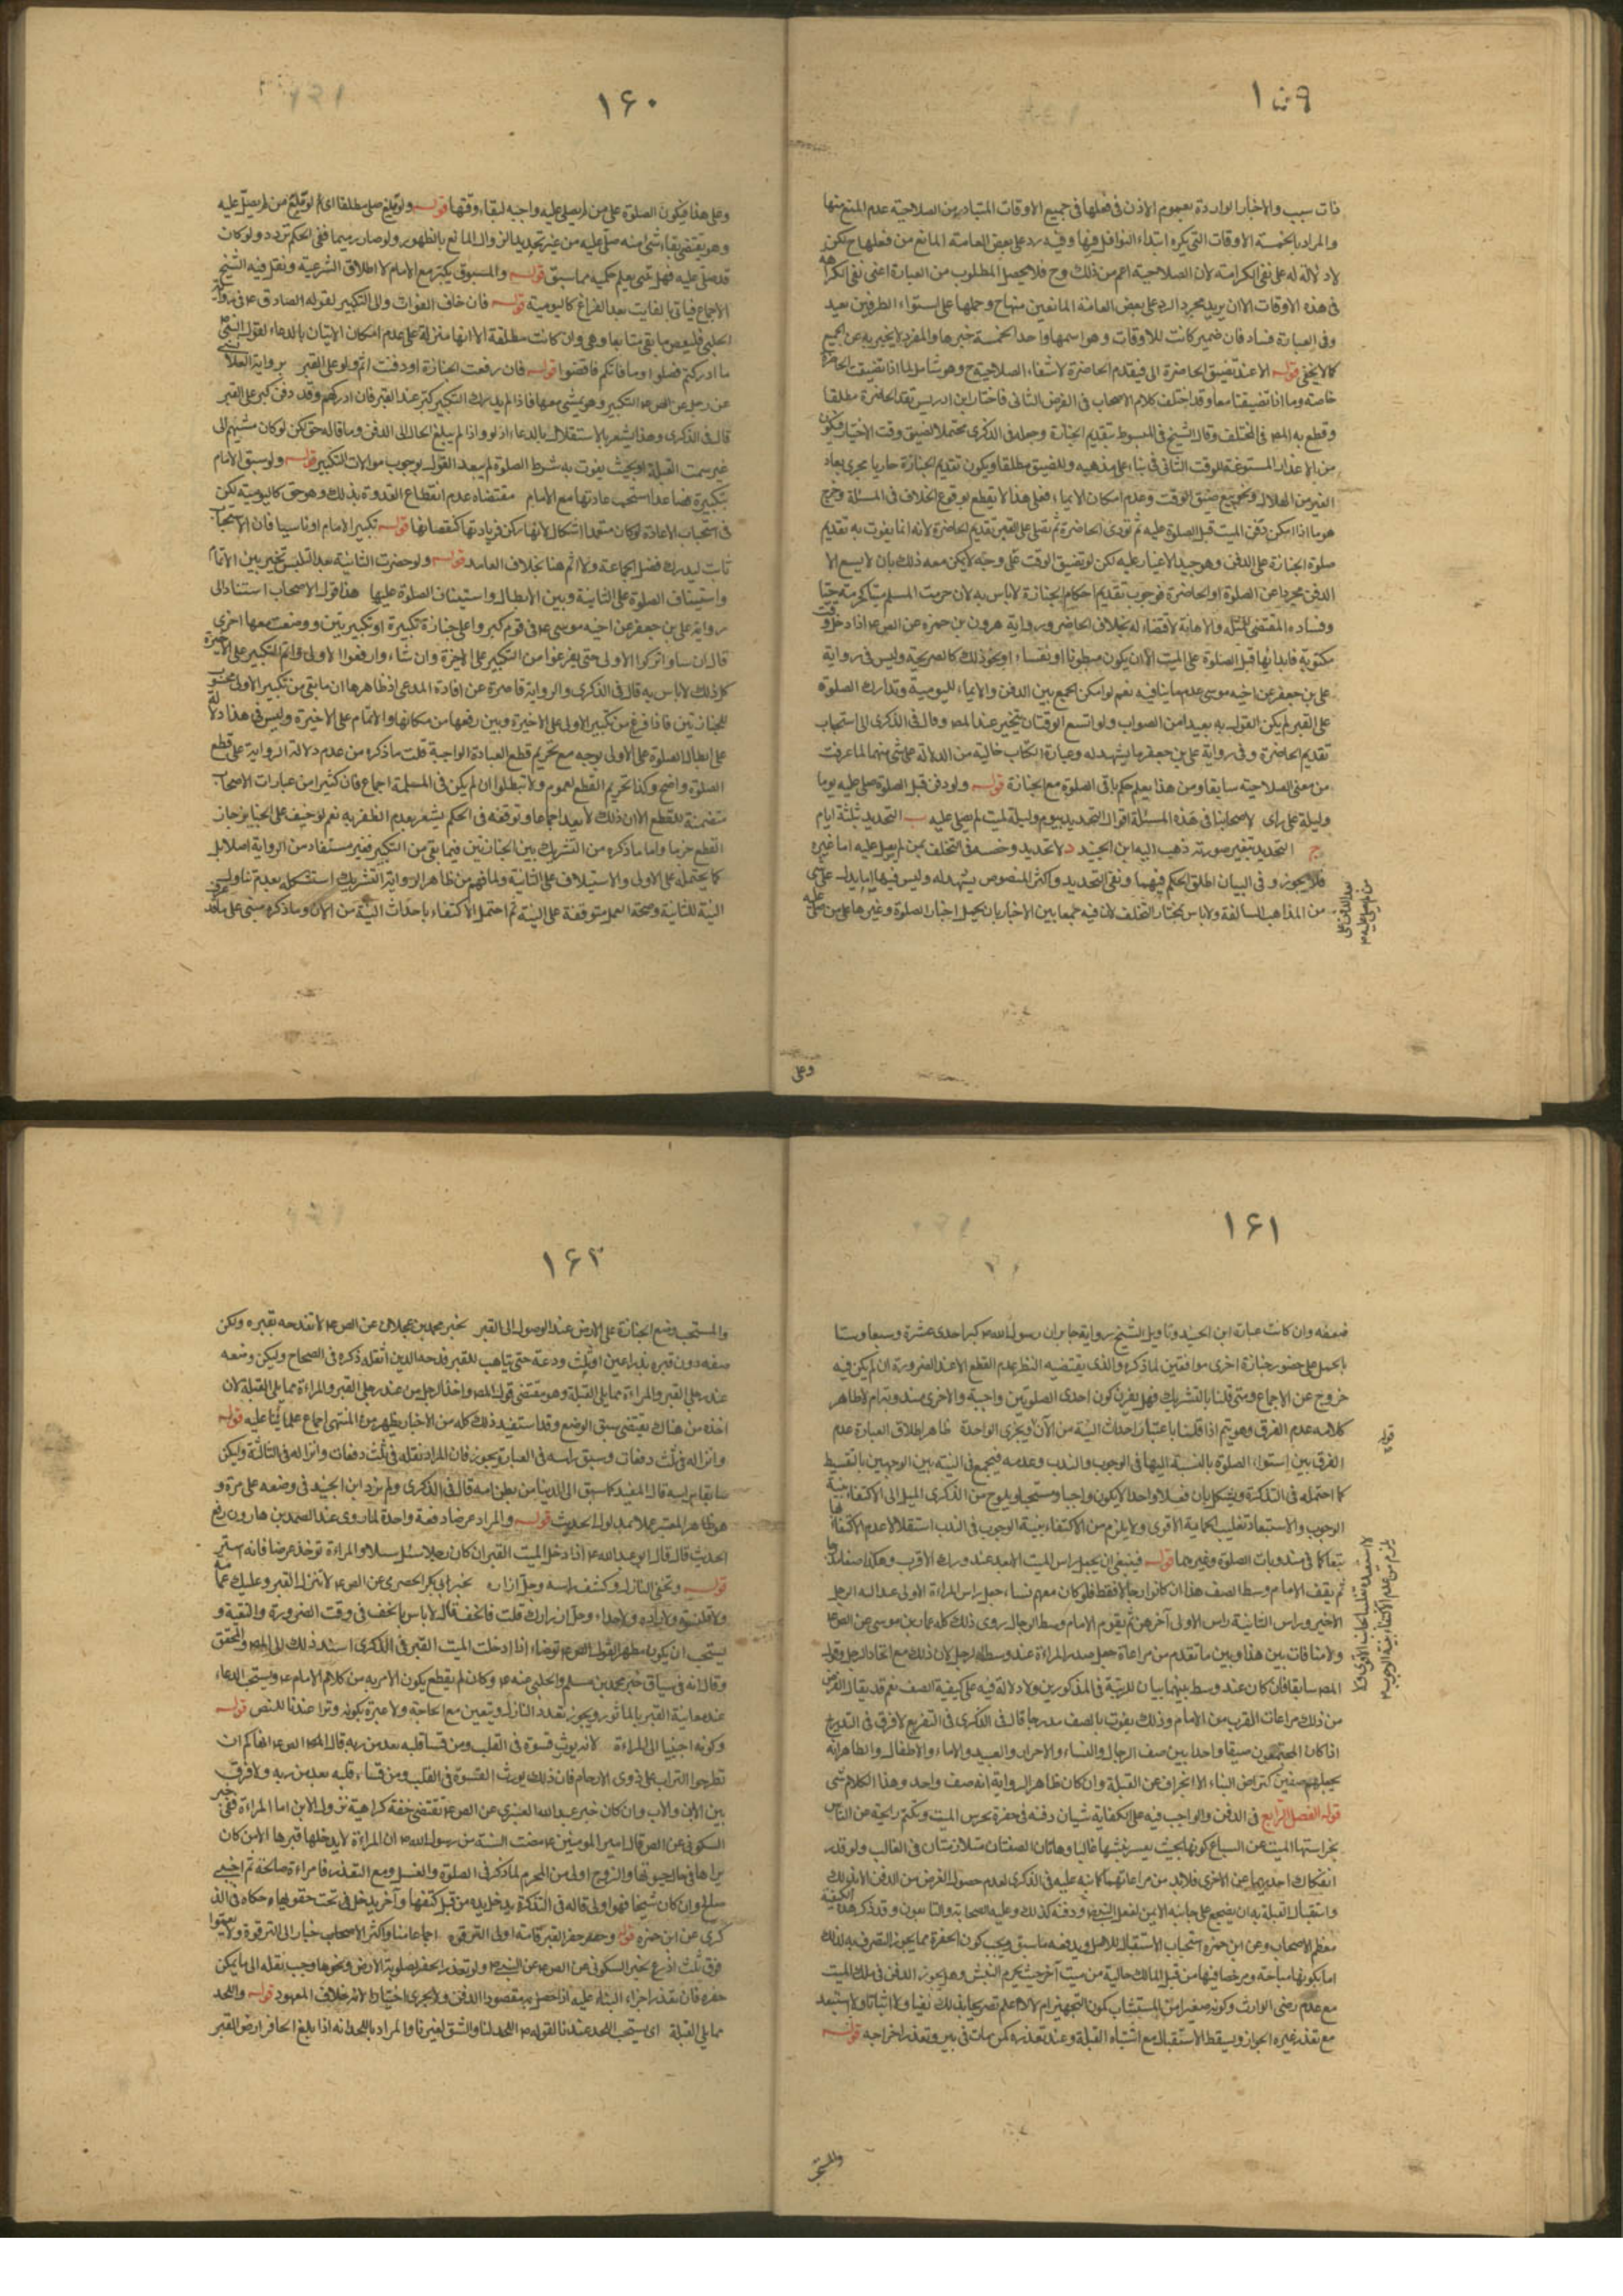 ۱۵۹
ذات سبب والاخبار الواردة بعموم الاذن فى فعلها فى جميع الاوقات المتبادر من الصلاحية عدم المنع منها
والمراد بالخمسة الاوقات التى يكره ابتداء النوافل فيها وفيه رد على بعض العامة المانع من فعلها ح لكن
لا دلالة له على نفى الكراهة لان الصلاحية اعم من ذلك وح فلا يحصل المطلوب من العبارة اعنى نفى الكراهة
فى هذه الاوقات الا ان يريد مجرد الرد على بعض العامة المانعين منها ح وحملها على استواء الطرفين بعيد
وفى العبارة فساد فان ضمير كانت للاوقات وهو اسمها واحد الخمسة خبرها والمفرد لا يخبر به عن الجميع
كما لا يخفى قوله الا عند تضيق الحاضرة الى فيقدم الحاضرة لانتفاء الصلاحية ح وهو شامل لما اذا تضيقت الحاضرة
خاصة وما اذا تضيقتا معا وقد اختلف كلام الاصحاب فى الفرض الثانى فاختار ابن ادريس تقديم الحاضرة مطلقا
وقطع به المص فى المختلف وقال الشيخ فى المبسوط بتقديم الجنازة وحمله فى الذكرى محتملا لضيق وقت الاختيار فيكون
من الاعذار المسوغة للوقت الثانى فى بناء على مذهبه وللضيق مطلقا ويكون تقديم الجنازة جاريا مجرى انقاذ
الغير من الهلاك ونحو مع ضيق الوقت وعدم امكان الايماء فعلى هذا لا يقطع بوقوع الخلاف فى المسئلة وخرج
هو ما اذا امكن دفن الميت قبل الصلوة عليه ثم تؤدى الحاضرة ثم تصلى على القبر تقديم الحاضرة لانه انما يفوت به تقديم
صلوة الجنازة على الدفن وهو جيد لا غبار عليه لكن لو تضيق الوقت على وجه لا يمكن معه ذلك بان لا يسع الا
الدفن مجردا عن الصلوة او الحاضرة فوجوب تقديم احكام الجنازة لا باس به لان حرمة المسلم ميتا كحرمته حيا
وفساده المقتضى للمثلة والاهانة لا قضاء له بخلاف الحاضر ورواية هرون بن حمزة عن الص ع اذا دخل وقت
مكتوبة فابدا بها قبل الصلوة على الميت الا ان يكون مبطونا او نفساء او نحو ذلك كالصريحة وليس فى رواية
على بن جعفر عن اخيه موسى عدم ما ينافيه نعم لو امكن الجمع بين الدفن والايماء لليومية وتدارك الصلوة
على القبر لم يكن القول به بعيدا من الصواب ولو اتسع الوقتان يتخير عند المص وقال فى الذكرى الى استحباب
تقديم الحاضرة وفى رواية على بن جعفر ما يشهد له وعبارة الكتاب خالية من الدلالة على شئ منهما لما عرفت
من معنى الصلاحية سابقا ومن هذا يعلم حكم باقى الصلوة مع الجنازة قوله ولو دفن قبل الصلوة صلى عليه يوما
وليلة على راى لاصحابنا فى هذه المسئلة اقوال التحديد بيوم وليلة لميت لم يصلى عليه ب التحديد بثلثة ايام
ج التحديد بتغير صورته ذهب اليه ابن الجنيد د لا تحديد وخصه فى المختلف بمن لم يصل عليه اما غيره
فلا يجوز وفى البيان اطلق الحكم فيهما ونفى التحديد واكثر النصوص يشهد له وليس فيها ما يدل على شئ
من المذاهب السالفة ولا باس بمختار المختلف لان فيه جمعا بين الاخبار بان يحمل اخبار الصلوة وغيرها على من صلى عليه
وعلى
۱۶۰
وعلى هذا فيكون الصلوة على من لم يصلى عليه واجبة لبقاء وقتها قوله ولو قلع صلى مطلقا اى لو قلع من لم يصل عليه
وهو يقتضى بقاء شئ منه صلى عليه من غير تحديد لزوال المانع بالظهور ولو صار رميما ففى الحكم تردد ولو كان
قد صلى عليه فهل تنبش يعلم حكمه مما سبق قوله والمسبوق يكبر مع الامام لاطلاق الشرعية ونقل فيه الشيخ
الاجماع فياتى بالفايت بعد الفراغ كاليومية قوله فان خاف الفوات والى التكبير لقوله الصادق ع فى رواية
الحلبى فليقض ما بقى متتابعا وهى وان كانت مطلقة الا انها منزلة على عدم امكان الاتيان بالدعاء لقول النبى ص
ما ادركتم فصلوا وما فاتكم فاقضوا قوله فان رفعت الجنازة او دفنت اتم ولو على القبر برواية القلانسى
عن رجل عن الص ع التكبير وهو يمشى معها فاذا لم يدرك التكبير كبر عند القبر فان ادركهم وقد دفن كبر على القبر
قال فى الذكرى وهذا يشعر بالاستقلال بالدعاء اذ لو والا لم يبلغ الحال الى الدفن وما قاله حق لكن لو كان مشيهم الى
غير سمت القبلة او بحيث يفوت به شرط الصلوة لم يبعد القول بوجوب موالات التكبير قوله ولو سبق الامام
بتكبيرة فصاعدا استحب اعادتها مع الامام مقتضاه عدم انقطاع القدوة بذلك وهو حق كاليومية لكن
فى استحباب الاعادة لو كان متعمدا اشكال لانها ركن فزيادتها كنقصانها قوله تكبير الامام او ناسيا فان الاستحباب
ثابت ليدرك فضل الجماعة ولا اثم هنا بخلاف العامد قوله ولو حضرت الثانية بعد التلبس تخير بين الاتمام
واستيناف الصلوة على الثانية وبين الابطال واستيناف الصلوة عليها هذا قول الاصحاب استنادا الى
رواية على بن جعفر عن اخيه موسى ع فى قوم كبروا على جنازة تكبيرة او تكبيرتين ووضعت معها اخرى
قال ان شاوا تركوا الاولى حتى يفرغوا من التكبير على الاخيرة وان شاء وا رفعوا الاولى واتم التكبير على الاخيرة
كل ذلك لا باس به قال فى الذكرى والرواية قاصرة عن افادة المدعى اذ ظاهرها ان ما بقى من تكبير الاولى محسوب
للجنازتين فاذا فرغ من تكبير الاولى على الاخيرة وبين رفعها من مكانها والاتمام على الاخيرة وليس فى هذا دلالة
على ابطال الصلوة على الاولى بوجه مع تحريم قطع العبادة الواجبة قلت ما ذكره من عدم دلالة الرواية على قطع
الصلوة واضح وكذا تحريم القطع لعموم ولا تبطلوا ان لم يكن فى المسئلة اجماع فان كثيرا من عبارات الاصحاب
متضمنة للقطع الا ان ذلك لا يعد اجماعا وتوقفه فى الحكم يشعر بعدم الظفر به نعم لو خيف على الجنايز جاز
القطع حزما واما ما ذكره من التشريك بين الجنازتين فيما بقى من التكبير فغير مستفاد من الرواية اصلا بل
كما يحتمله على الاولى والاستيناف على الثانية ولما فهم من ظاهر الرواية التشريك استشكله بعدم تناول
النية للثانية وصحة العمل متوقفة على النية ثم احتمل الاكتفاء باحداث النية من الان وما ذكره مبنى على ما قد
۱۶۱
ضعفه وان كانت عبارة ابن الجنيد وتاويل الشيخ رواية جابر ان رسول الله ص كبر احدى عشرة وسبعا وستا
بالحمل على حضور جنازة اخرى موافقين لما ذكره والذى يقتضيه النظر عدم القطع الا عند الضرورة ان لم يكن فيه
خروج عن الاجماع ومتى قلنا بالتشريك فهل يفرق كون احدى الصلوتين واجبة والاخرى مندوبة ام لا ظاهر
كلامه عدم الفرق وهو يتم اذا قلنا باعتبار احداث النية من الآن ويجزى الواحدة ظاهر اطلاق العبارة عدم
الفرق بين استواء الصلوة بالنسبة اليها فى الوجوب والندب وعدمه فيجمع فى النية بين الوجهين بالتقسيط
كما احتمله فى التذكرة ويشكل بان فعلا واحدا لا يكون واجبا ومستحبا ويلوح من الذكرى الميل الى الاكتفاء بنية
الوجوب والاستبعاد تغليب الجانب الاقوى ولا يلزم من الاكتفاء بنية الوجوب فى الندب استقلالا عدم الاكتفاء بها
تبعا كما فى مندوبات الصلوة وغيرها قوله فينبغى ان يجعل راس الميت الابعد عند ورك الاقرب وهكذا صفا مدرجا
ثم يقف الامام وسط الصف هذا ان كانوا رجالا فقط فلو كان معهم نساء جعل راس المراءة الاولى عند الية الرجل
الاخير وراس الثانية راس الاولى آخرهن ثم يقوم الامام وسط الرجال روى ذلك كله عمار بن موسى عن الص ع
ولا منافات بين هذا وبين ما تقدم من مراعاة جعل صدر المراءة عند وسط الرجل لان ذلك مع اتحاد الرجل وقول
المص سابقا فان كان عند وسط بينهما بيان للرتبة فى المذكورين ولا دلالة فيه على كيفية الصف نعم قد يقال الغرض
من ذلك مراعات القرب من الامام وذلك يفوت بالصف مدرجا قال فى الذكرى فى التفريع لا فرق فى التدريج
اذا كان المجتمعون صنفا واحدا بين صف الرجال والنساء والاحرار والعبيد والاماء والاطفال والظاهر انه
يجعلهم صفين كتراص البناء لا انحراف عن القبلة وان كان ظاهر الرواية انه صف واحد وهذا الكلام شئ
قوله الفصل الرابع فى الدفن والواجب فيه على الكفاية شيان دفنه فى حفرة تحرس الميت وتكتم رائحته عن الناس
بحراستها الميت عن السباع كونها بحيث يعسر نبشها غالبا وهاتان الصفتان متلازمتان فى الغالب ولو قدر
انفكاك احديهما عن الاخرى فلا بد من مراعاتهما كما نبه عليه فى الذكرى لعدم حصول الغرض من الدفن الا بذلك
واستقبال القبلة به ان يضجع على جانبه الايمن لفعل النبى ص ودفنه كذلك وعليه الصحابة والتابعون وقد ذكر هذه الكيفية
معظم الاصحاب وعن ابن حمزه استحباب الاستقبال للاصل ويدفعه ما سبق ويجب كون الحفرة مما يجوز التصرف به لذلك
اما بكونها مباحة ومرخصا فيها من قبل المالك خالية من ميت آخر حيث يحرم النبش وهل يجوز الدفن فى ملك الميت
مع عدم رضى الوارث وكونه صغيرا من المستثنيات كون التجهيز ام لا لا اعلم تصريحا بذلك نفيا ولا اثباتا ولا استبعد
مع تعذر غيره الجواز ويسقط الاستقبال مع اشتباه القبلة وعند تعذره كمن مات فى بير وتعذر اخراجه قوله
والمستحب
۱۶۲
والمستحب وضع الجنازة على الارض عند الوصول الى القبر لخبر محمد بن عجلان عن الص ع لا تفدحه بقبره ولكن
ضعه دون قبره بذراعين او ثلث ودعه حتى يتاهب للقبر فدحه الدين اثقله ذكره فى الصحاح وليكن وضعه
عند رجلى القبر والمراءة مما يلى القبلة وهو مقتضى قول المص واخذ الرجل من عند رجلى القبر والمراءة مما يلى القبلة لان
اخذه من هناك يقتضى سبق الوضع وقد استفيد ذلك كله من الاخبار ويظهر من المنتهى اجماع علمائنا عليه قوله
وانزاله فى ثلث دفعات وسبق راسه فى العبارة تجوز فان المراد نقله فى ثلث دفعات وانزاله فى الثالثة وليكن
سابقا براسه قال المفيد كما سبق الى الدنيا من بطن امه قال فى الذكرى ولم يزد ابن الجنيد فى وضعه على مرة و
هو ظاهر المعتبر عملا بمدلول الحديث قوله والمراد عرضا دفعة واحدة لما روى عند الصمد بن هارون رفع
الحديث قال قال ابو عبد الله ع اذا دخل الميت القبر ان كان رجلا سل سلا والمراءة توخذ عرضا فانه استر
قوله وتحفى النازل وكشف راسه وحل ازراره لخبر ابى بكر الحضرمى عن الص ع لا تنزل القبر وعليك عمامة
ولا قلنسوة ولا رداء ولا حذاء وحل ازرارك قلت فالخف قال لا باس بالخف فى وقت الضرورة والتقية و
يستحب ان يكون متطهرا لقول الص ع توضاء اذا ادخلت الميت القبر فى الذكرى اسند ذلك الى المص والمحقق
وقال انه فى سياق خبر محمد بن مسلم والحلبى عنه ع وكان لم يقطع بكون الامر به من كلام الامام ع ويستحب الدعاء
عند معاينة القبر بالماثور ويجوز تعدد النازل ويتعين مع الحاجة ولا عبرة بكونه وترا عندنا للنص قوله
وكونه اجنبيا الا المراءة لانه يورث قسوة فى القلب ومن قسا قلبه بعد من ربه قال الص ع انهاكم ان
تطرحوا التراب على ذوى الارحام فان ذلك يورث القسوة فى القلب ومن قساء قلبه بعد من ربه ولا فرق
بين الابن والاب وان كان خبر عبد الله العنبرى عن الص ع يقتضى خفة كراهية نزول الابن اما المراءة ففى خبر
السكونى عن الص قال امير المومنين ع مضت السنة من رسول الله ص ان المراءة لا يدخلها قبرها الا من كان
يراها فى حال حيوتها والزوج اولى من المحرم لما ذكر فى الصلوة والغسل ومع التعذر فامراءة صالحة ثم اجنبى
صالح وان كان شيخا فهو اولى قاله فى التذكرة يدخل يده من قبل كتفها وآخر يدخل فى تحت حقويها وحكاه فى الذ
كرى عن ابن حمزه قوله وحفر القبر قامة او الى الترقوة اجماعا منا واكثر الاصحاب خيار الى الترقوة ولا يعمقوا
فوق ثلث اذرع لخبر السكونى عن الص ع عن النبى ص ولو تعذر الحفر لصلوبة الارض ونحوها وجب نقله الى ما يمكن
حفره فان تعذر اجزاء البناء عليه اذا حصل به مقصود الدفن ولا يجزى اختيارا لانه خلاف المعهود قوله واللحد
مما يلى القبلة اى يستحب اللحد عندنا لقوله ص اللحد لنا والشق لغيرنا والمراد باللحد انه اذا بلغ الحافر ارض القبر